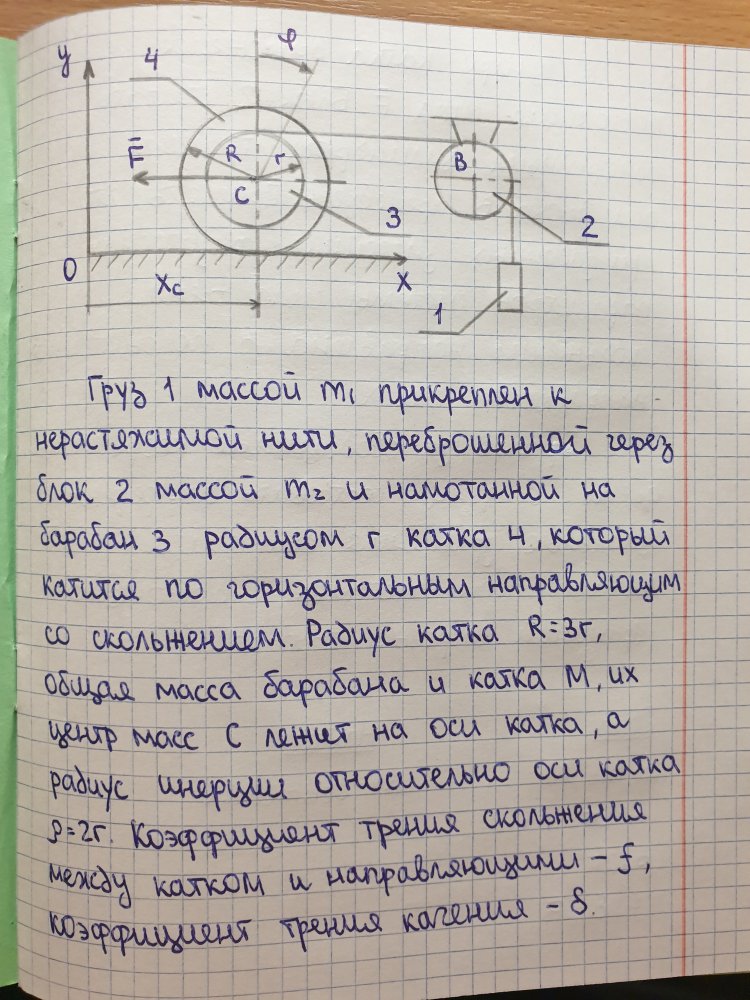 y
4
φ
F̄
R
r
B
C
3
2
O
Xc
X
1
Груз 1 массой m₁ прикреплен к
нерастяжимой нити, переброшенной через
блок 2 массой m₂ и намотанной на
барабан 3 радиусом r катка 4, который
катится по горизонтальным направляющим
со скольжением. Радиус катка R=3r,
общая масса барабана и катка M, их
центр масс C лежит на оси катка, а
радиус инерции относительно оси катка
ρ=2r. Коэффициент трения скольжения
между катком и направляющими – f,
коэффициент трения качения – δ.